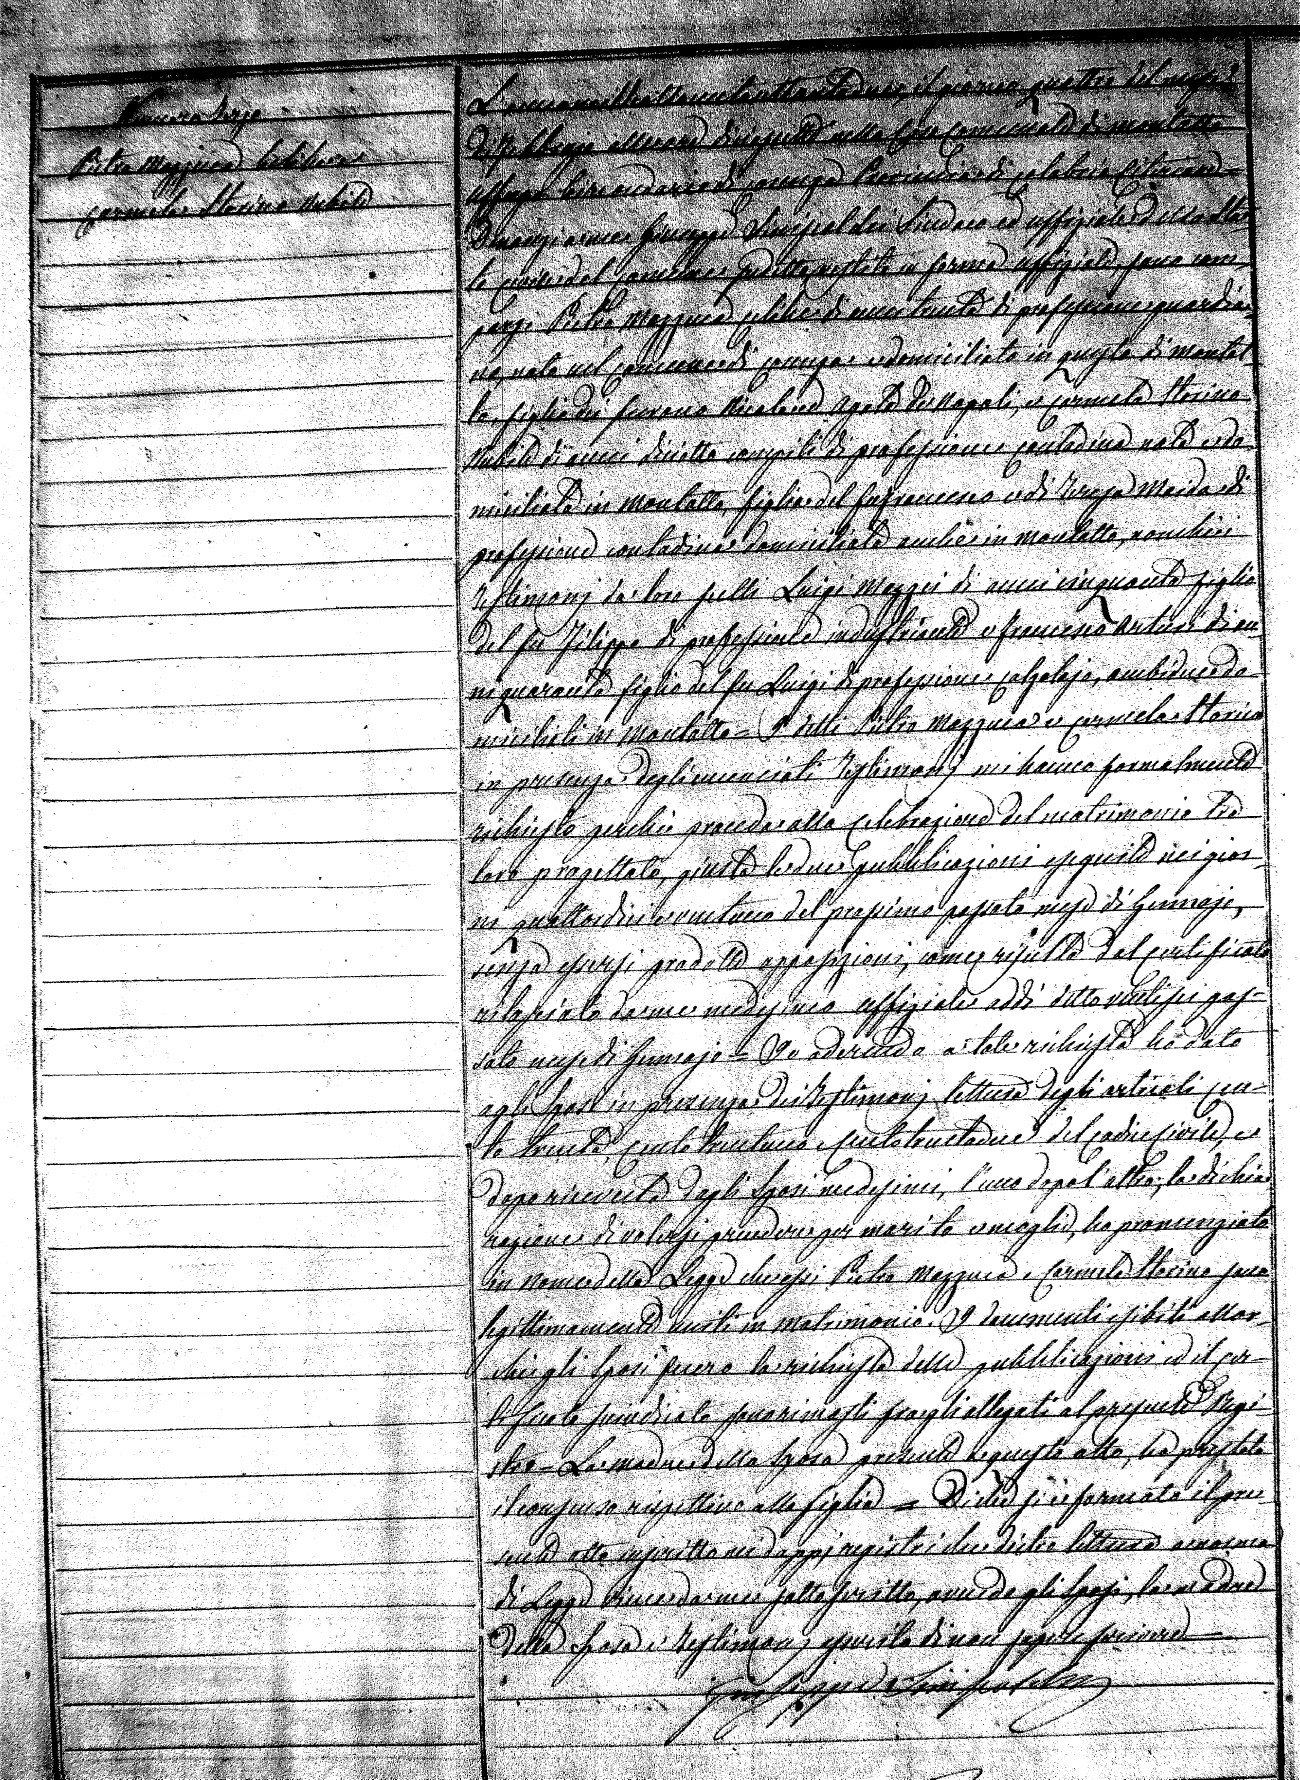 Numero terzo
Pietro Mazzuca celibe e
Carmela Storino nubile
L'anno milleottocentottantadue, il giorno quattro del mese
di Febbraio alle ore dieci nella Casa Comunale di Montalto
Uffugo Circondario di Cosenza Provincia di Calabria Citeriore =
Dinanzi a me Giuseppe Sindaco ed uffiziale dello Sta
to civile del Comune suddetto vestito in forma uffiziale, sono com
parsi Pietro Mazzuca celibe di anni trenta di professione guardia
no, nato nel Comune di Cosenza e domiciliato in questo di Montal
to, figlio di e Carmela Storino
nubile di anni diciotto compiti di professione contadina nata e do
miciliata in Montalto, figlia del fu Francesco e di Teresa Maida di
professione contadina domiciliata anche in Montalto, nonchè i
Testimonj da loro scelti Luigi Mazzei di anni cinquanta figlio
del fu Filippo di professione industriante e Francesco Arturi di an
ni quaranta figlio del fu Luigi di professione calzolajo, ambidue do
miciliati in Montalto = I detti Pietro Mazzuca e Carmela Storino
in presenza degli enunciati Testimonj mi hanno formalmente
richiesto perchè proceda alla celebrazione del matrimonio tra
loro progettato, giusta le due pubblicazioni eseguite nei gior
ni quattordici e ventuno del prossimo passato mese di Gennajo,
senza essersi prodotte opposizioni, come risulta dal certificato
rilasciato da me medesimo uffiziale addì detto pas
sato mese di Gennajo = Io aderendo a tale richiesta ho dato
agli sposi in presenza dei Testimonj lettura degli articoli cen
to trenta, cento trentuno e cento trentadue del Codice Civile, e
dopo ricevuta dagli sposi medesimi, l'uno dopo l'altro, la dichia
razione di volersi prendere per marito e moglie, ho pronunziato
in nome della Legge che essi Pietro Mazzuca e Carmela Storino sono
legittimamente uniti in matrimonio. I documenti esibiti allor
chè gli sposi fecero la richiesta delle pubblicazioni ed il cer
tificato sono rimasti fra gli allegati al presente Regi
stro = La madre della sposa presente a questo atto, ha prestato
il consenso rispettivo alla figlia = Di che si è formato il pre
sente atto inscritto nei doppj registri che dietro lettura a norma
di Legge viene da me sottoscritto, avendo gli sposi, la madre
della sposa e Testimonj asserito di non sapere scrivere
Giuseppe